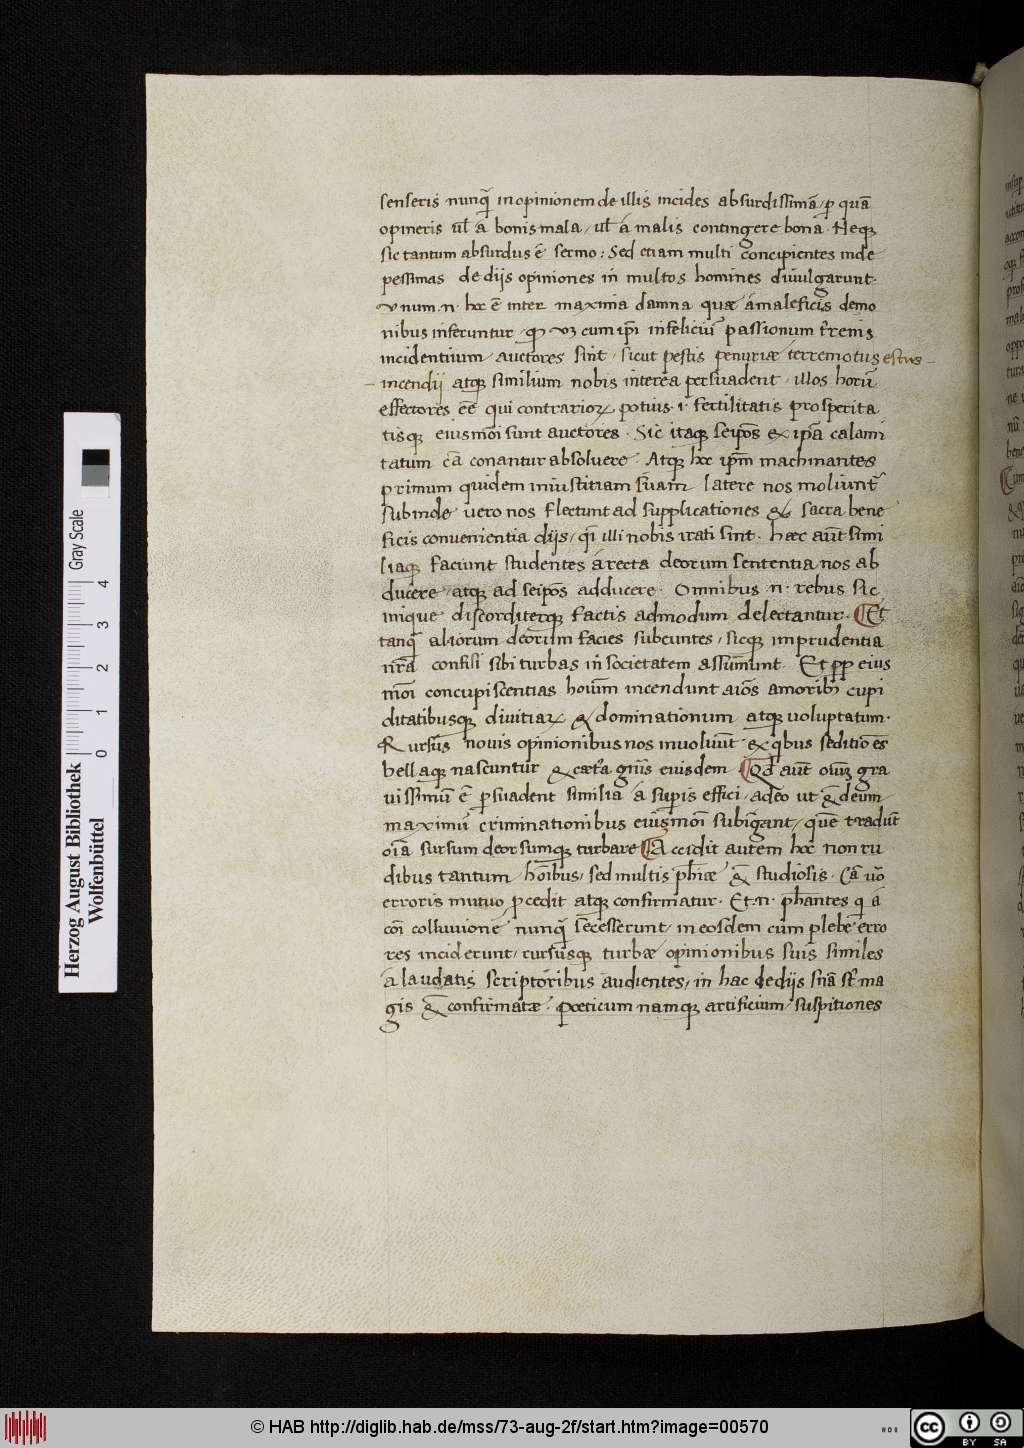 senseris nunq̃ in opinionem de illis incides absurdissimã, ꝑ quã
opineris ul̃ a bonis mala, ul̃ á malis contingere bona. Neqꝫ
sic tantum absurdus ẽ sermo: Sed etiam multi concipientes inde
pessimas de diis opiniones in multos homines diuulgarunt.
vnum .n. hoc ẽ inter maxima damna quæ á maleficis demo
nibus inferuntur, cum ip̃i infeliciũ passionum
incidentium, auctores sint, sicut pestis penuriæ terremotus estus
incendii atqꝫ similium nobis interea persuadent, illos horũ
effectores eẽ qui contrarioꝝ potius .i. fertilitatis prosperita
tisqꝫ eiusmõi sunt auctores. Sic itaqꝫ seipõs ex ip̃a calami
tatum cã conantur absoluere. Atqꝫ hoc ip̃m machinantes
primum quidem iniustitiam suam latere nos moliunt̃
subinde uero nos flectunt ad supplicationes & sacra bene
ficis conuenientia diis, q̃i illi nobis irati sint. hæc aũt simi
liaqꝫ faciunt studentes á recta deorum sententia nos ab
ducere, atqꝫ ad seipõs adducere. Omnibus .n. rebus sic
inique discorditerqꝫ factis admodum delectantur. Et
tanq̃ aliorum deorum facies subeuntes, sicqꝫ imprudentia
nr̃a confisi sibi turbas in societatem assumunt. Et ꝓp eius
mõi concupiscentias hoium incendunt aiõs amoribꝫ cupi
ditatibusqꝫ diuitiaꝝ & dominationum atqꝫ uoluptatum.
Rursũs nouis opinionibus nos inuoluũt ex qbus seditiões
bellaqꝫ nascuntur & cæt̃a gñis eiusdem. Qd̃ aũt oium gra
uissimũ ẽ ꝑsuadent similia á supis effici, adeo ut & deum
maximũ criminationibus eiusmõi subigant, quẽ tradũt
oĩa sursum deorsumqꝫ turbare. Accidit autem hoc non ru
dibus tantum hoĩbus, sed multis phiæ & studiosis. Cã uõ
erroris mutuo ꝓcedit atqꝫ confirmatur. Et .n. phantes q á
cõi colluuione nunq̃ secesserunt, in eosdem cum plebe erro
res inciderunt, rursusqꝫ turbæ opinionibus suis similes
á laudatis scriptoribus audientes, in hac de diis sñia sũt ma
gis & confirmatæ. Poeticum namqꝫ artificium, suspitiones
Herzog August Bibliothek
Wolfenbüttel
Gray Scale
0 1 2 3 4
© HAB http://diglib.hab.de/mss/73-aug-2f/start.htm?image=00570
HAB
cc
BY SA